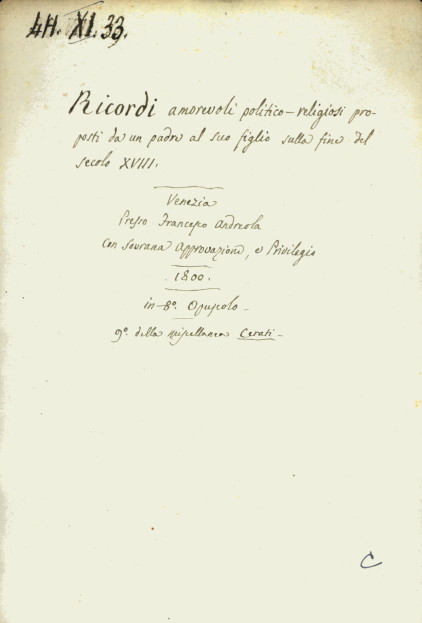 4H. XI. 33.
Ricordi amorevoli politico-religiosi pro-
posti da un padre al suo figlio sulla fine del
secolo XVIII.
Venezia
Presso Francesco Andreola
Con Sovrana Approvazione, e Privilegio
1800.
in-8º. Opuscolo
9º. della miscellanea Cerati-
C